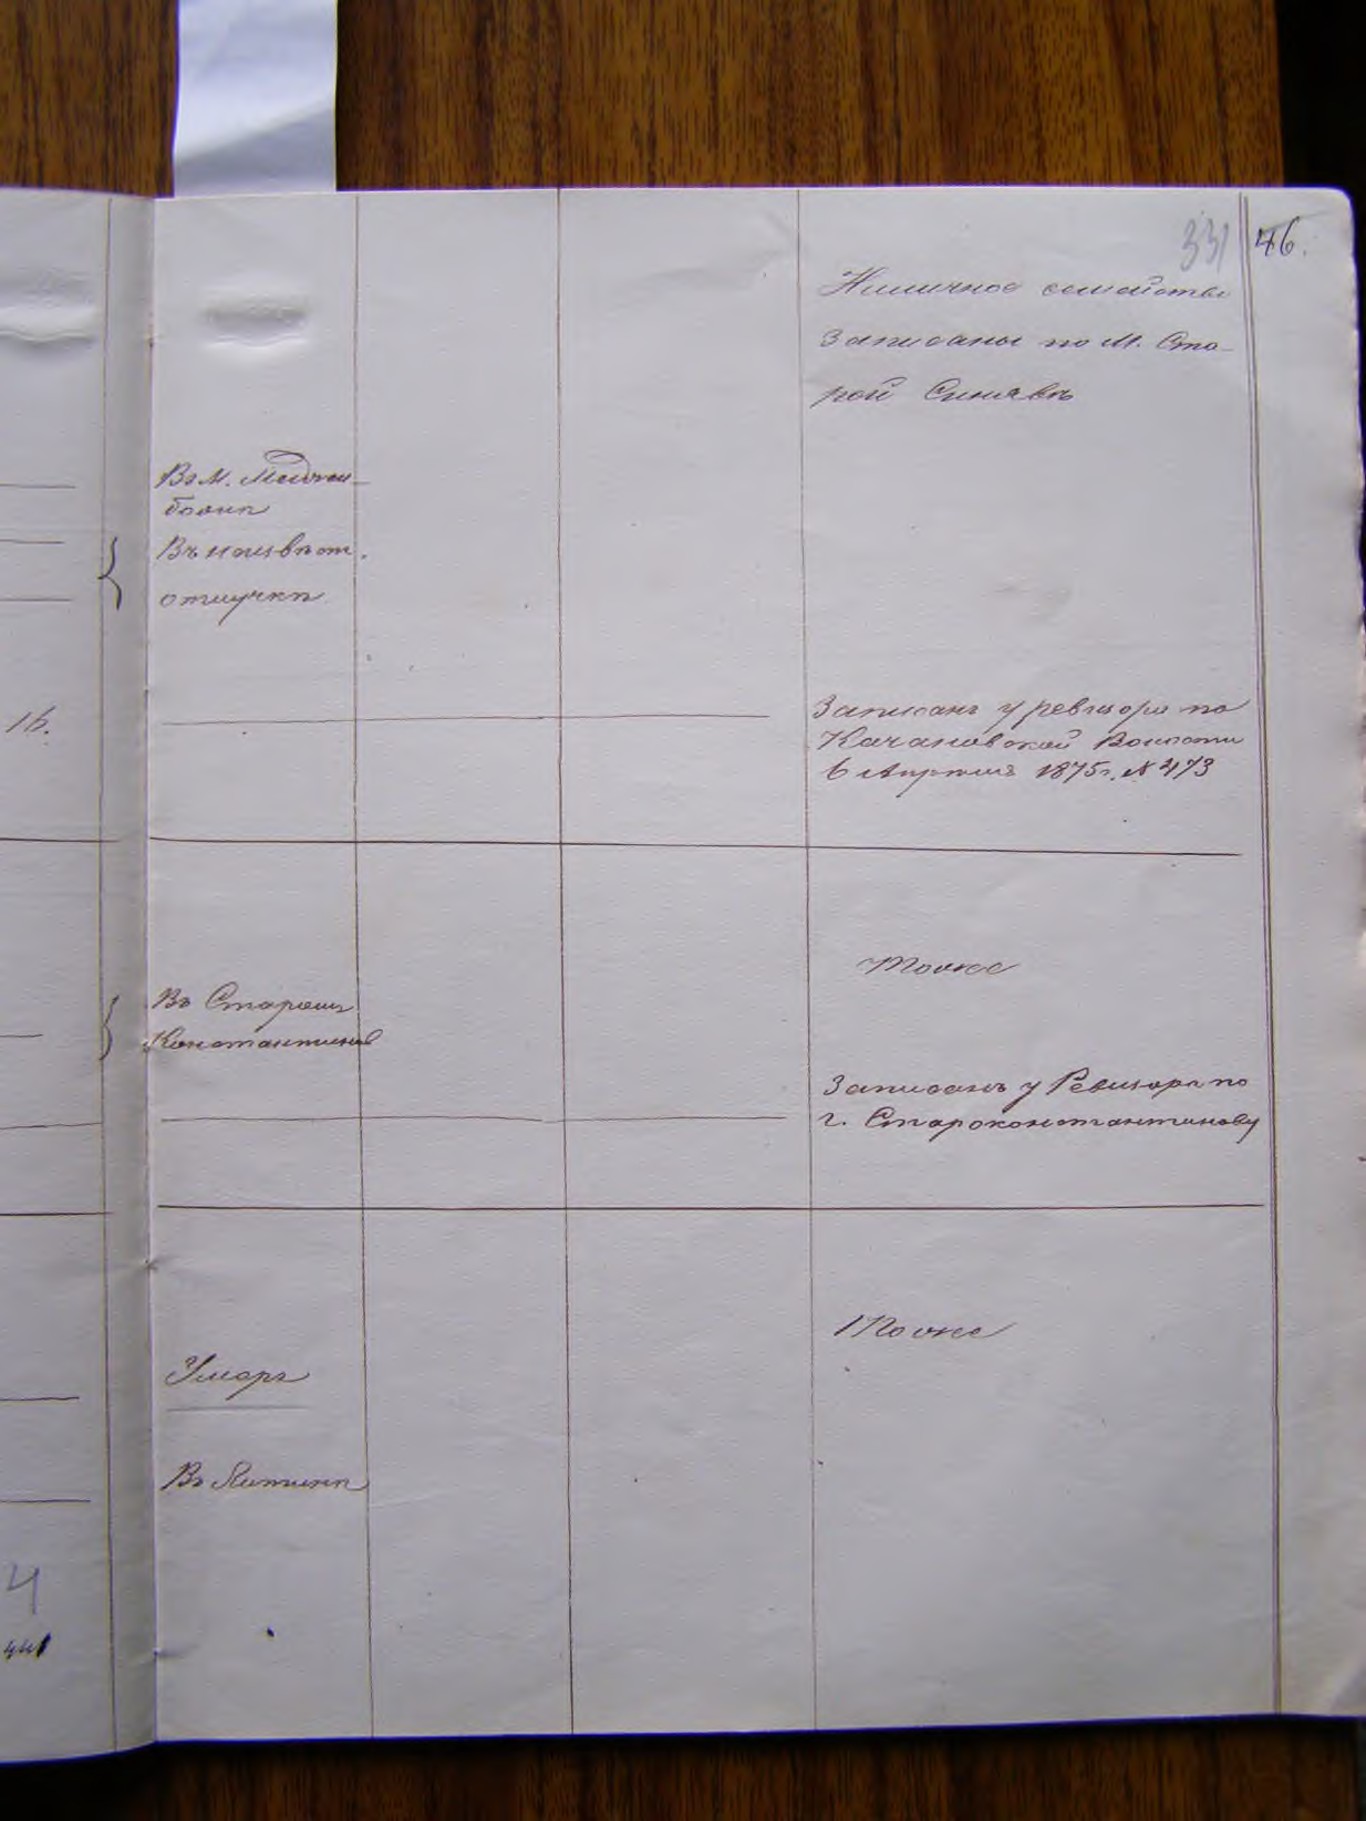 331
46.
Наличное семейство
записаны по М. Ста-
рой Синявѣ
Въ М. Меджи-
божѣ
Въ неизвѣст.
отлучкѣ
16.
Записанъ у ревизора по
Качановской Волости
6 Апрѣля 1875г. № 473
Тоже
Въ Старомъ
Константинов
Записанъ у Ревизора по
г. Староконстантинову
Тоже
Умеръ
Въ Литинѣ
4
441